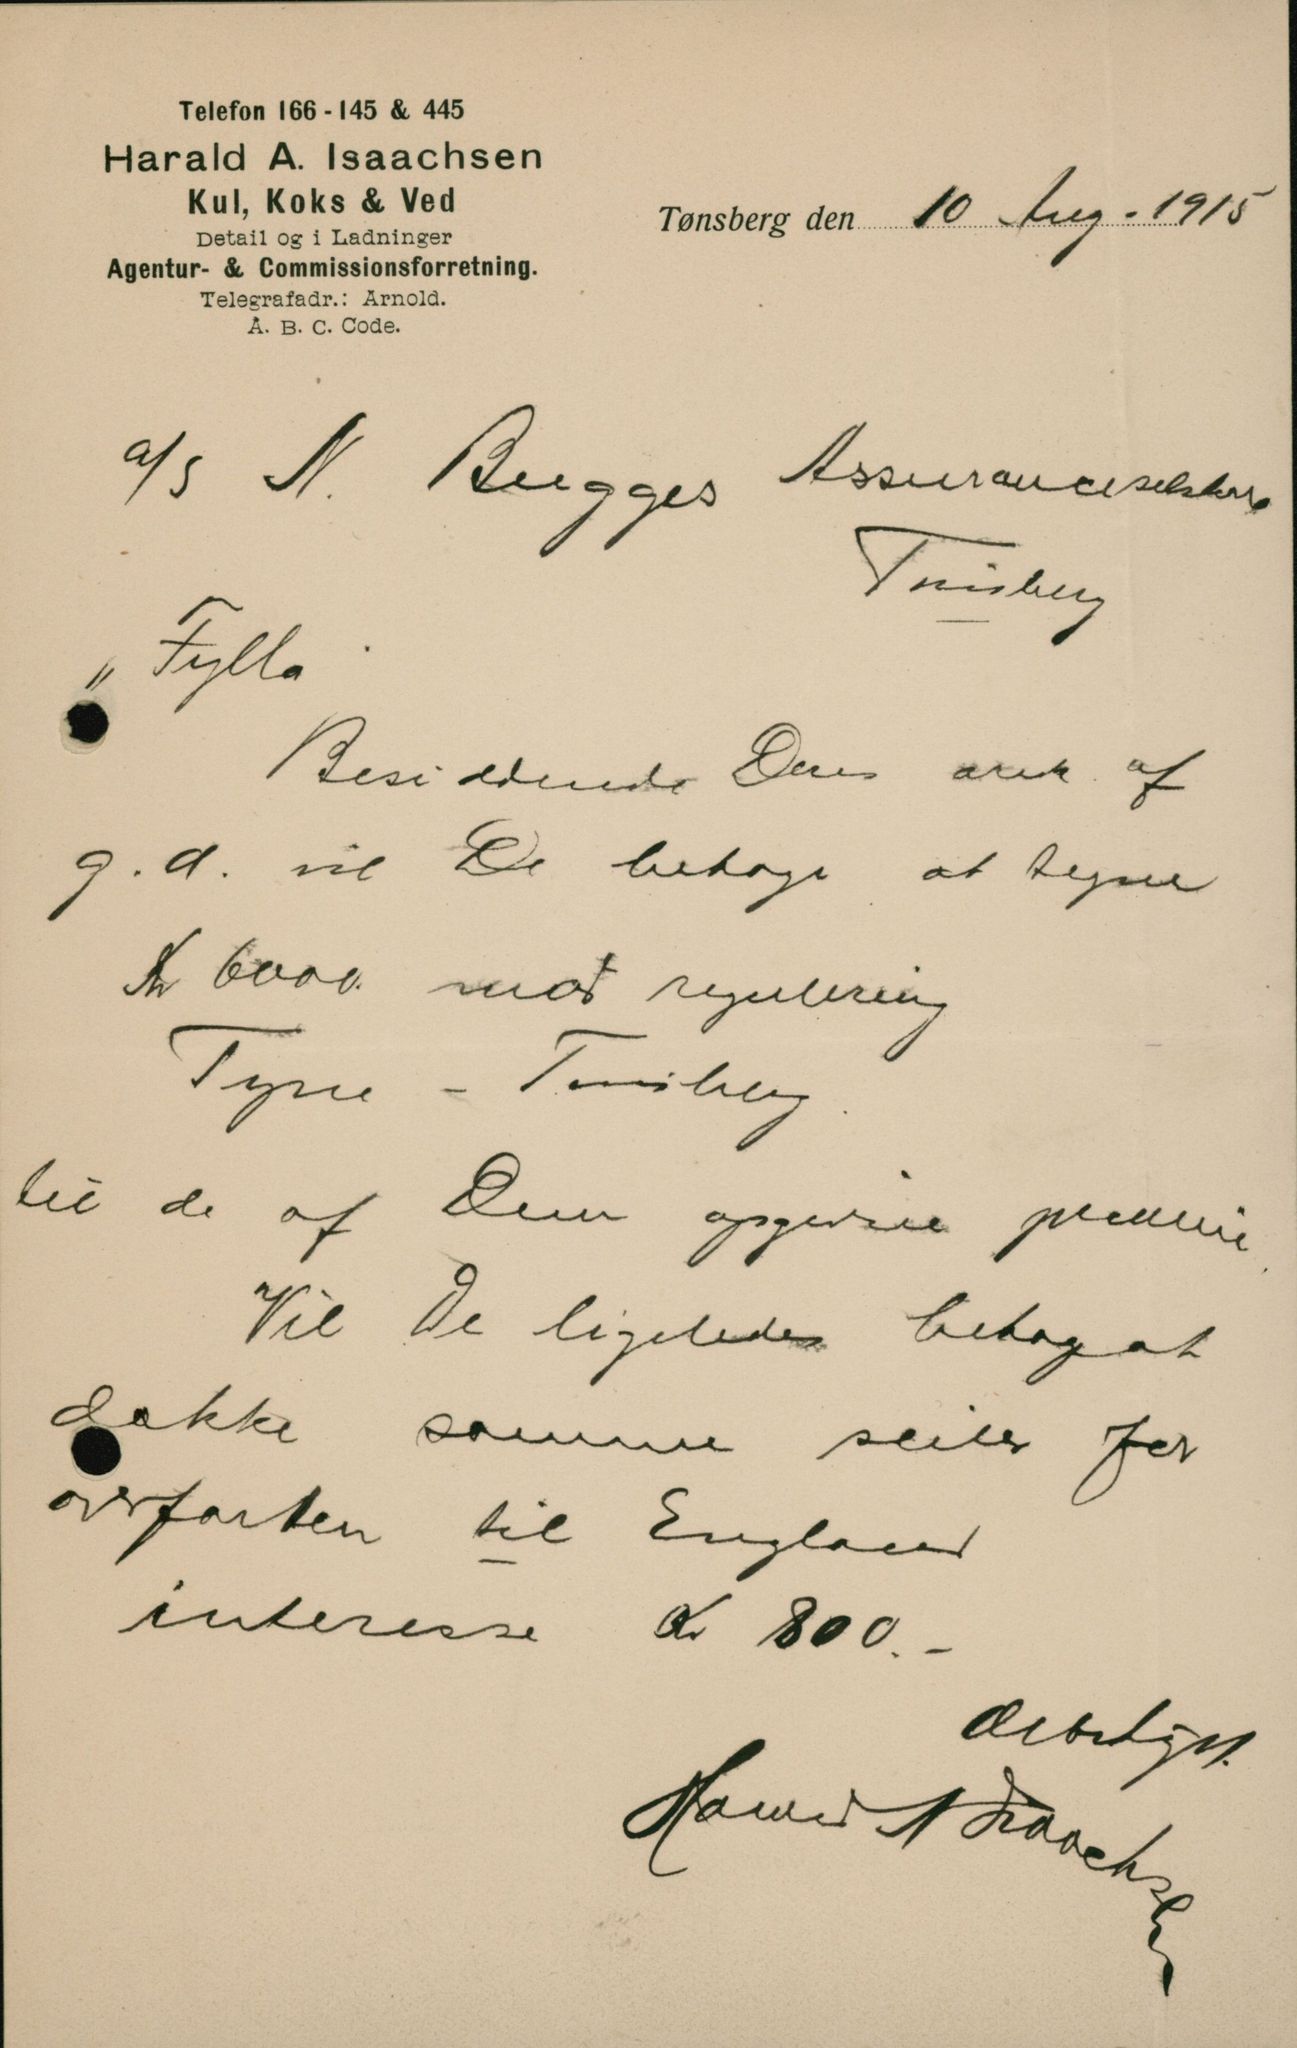 Telefon 166 - 145 & 445
Harald A. Isaachsen
Kul, Koks & Ved
Detail og i Ladninger
Agentur- & Commissionsforretning.
Telegrafadr.: Arnold.
A. B. C. Code.
Tønsberg den 10 Aug. 1915
a/s N. Bugges Assuranceselskab
Tønsberg
"Fylla"
Besiddende Deres ærede af
g.d. vil De behage at tegne
Kr 6000. mod regulering
Tyne - Tønsberg.
til de af Dem opgivne præmie.
Vil De ligeledes behage at
dække samme seiler for
overfarten til England
interesse Kr 800.-
Ærbødigst.
Harald A Isaachsen